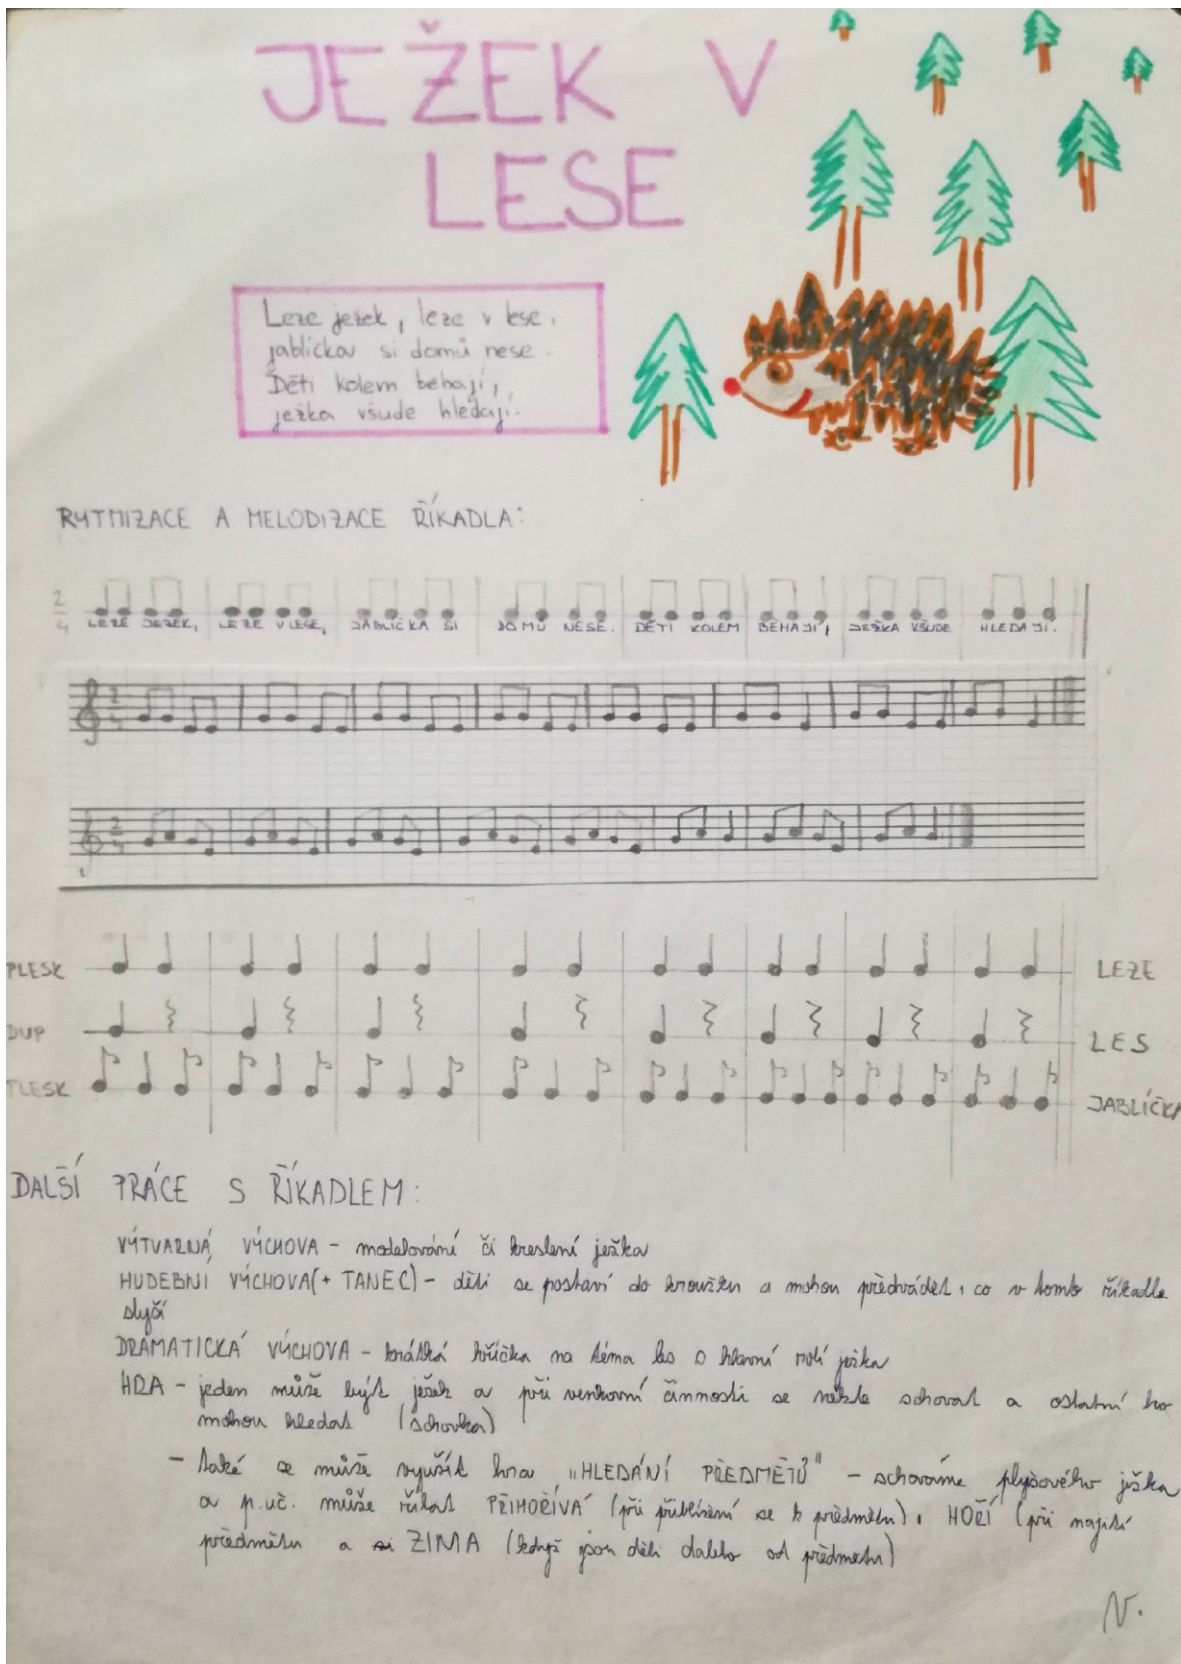 JEŽEK V
LESE
Leze ježek, leze v lese,
jablíčka si domů nese.
Děti kolem běhají,
ježka všude hledají.
RYTMIZACE A MELODIZACE ŘÍKADLA:
2
4
LEZE JEŽEK, LEZE V LESE, JABLÍČKA SI DOMŮ NESE. DĚTI KOLEM BĚHAJÍ, JEŽKA VŠUDE HLEDAJÍ.
2
4
2
4
PLESK LEZE
DUP LES
TLESK JABLÍČKA
DALŠÍ PRÁCE S ŘÍKADLEM:
VÝTVARNÁ VÝCHOVA - modelování či kreslení ježka
HUDEBNÍ VÝCHOVA (+ TANEC) - děti se postaví do kroužku a mohou předvádět, co v tomto říkadle
slyší
DRAMATICKÁ VÝCHOVA - krátká hříčka na téma les s hlavní rolí ježka
HRA - jeden může být ježek a při venkovní činnosti se někde schovat a ostatní ho
mohou hledat (schovka)
- také se může využít hra „HLEDÁNÍ PŘEDMĚTŮ" - schováme plyšového ježka
a p.uč. může říkat PŘIHOŘÍVÁ (při přiblížení se k předmětu), HOŘÍ (při najití
předmětu a ZIMA (když jsou děti daleko od předmětu)